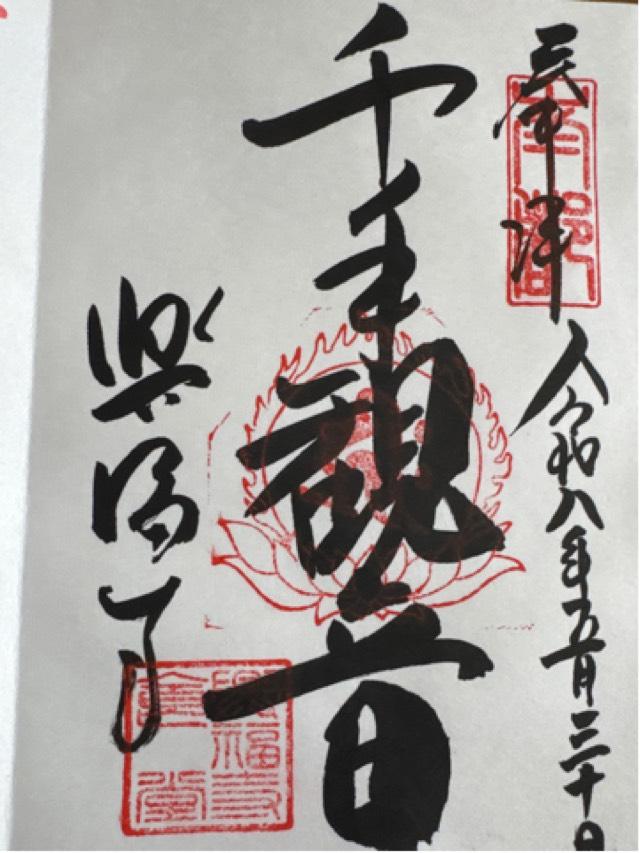 奉拝
南都
令和八年五月三十日
千手観音
興福寺
興福寺金堂